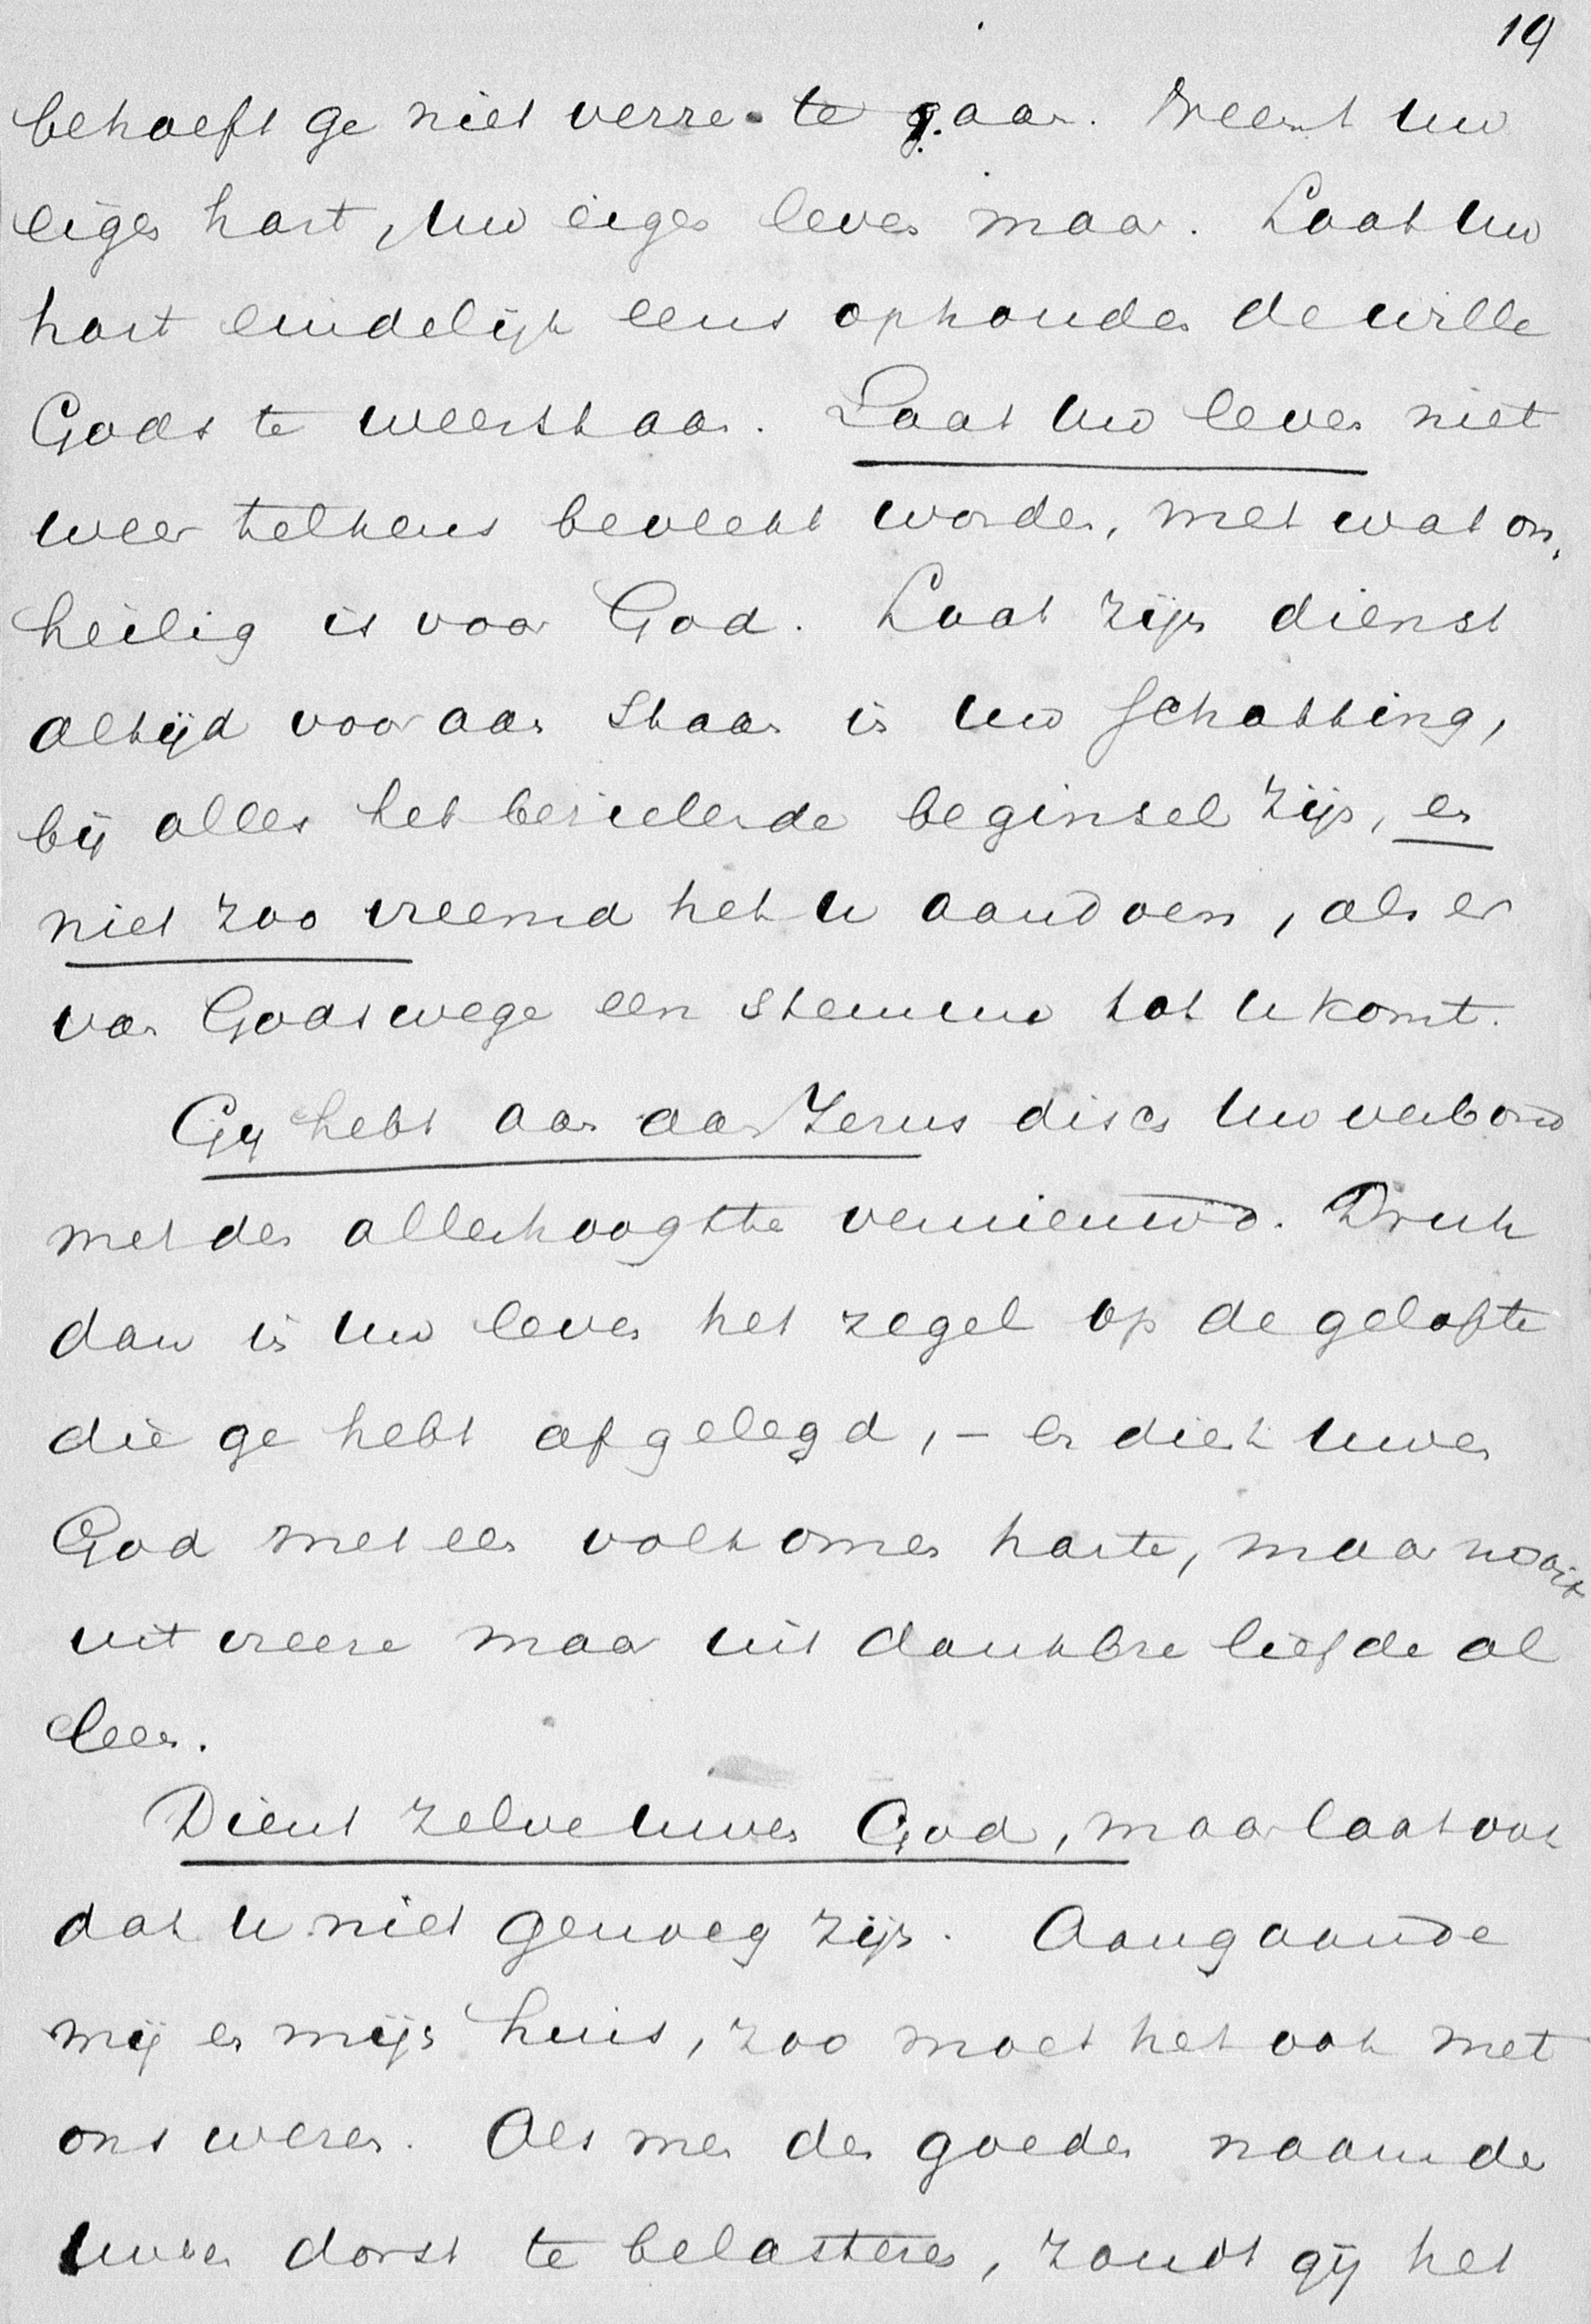 19
behoeft ge niet verre te gaan. Neemt uw
eigen hart, uw eigen leven maar. Laat uw
hart eindelijk eens ophouden de wille
Gods te weerstaan. Laat uw leven niet
weer telkens bevlekt worden, met wat on,
heilig is voor God. Laat zijn dienst
altijd voor aan staan in uw schatting,
bij alles het bezielende beginsel zijn, en
niet zoo vreemd het u aandoen, als er
van Godswege een stemme tot u komt.
Gij hebt aan aan Jezus disch uw verbond
met den allerhoogste vernieuwd. Druk
dan in uw leven het zegel op de gelofte
die ge hebt afgelegd, – en dient uwen
God met een volkomen harte, maar nooit
uit vreeze maar uit dankbre liefde al
leen.
Dient zelve uwen God, maar laat ook
dat u niet genoeg zijn. Aangaande
mij en mijn huis, zoo moet het ook met
ons wezen. Als men den goeden naam der
uwen dorst te belasteren, zoudt gij het